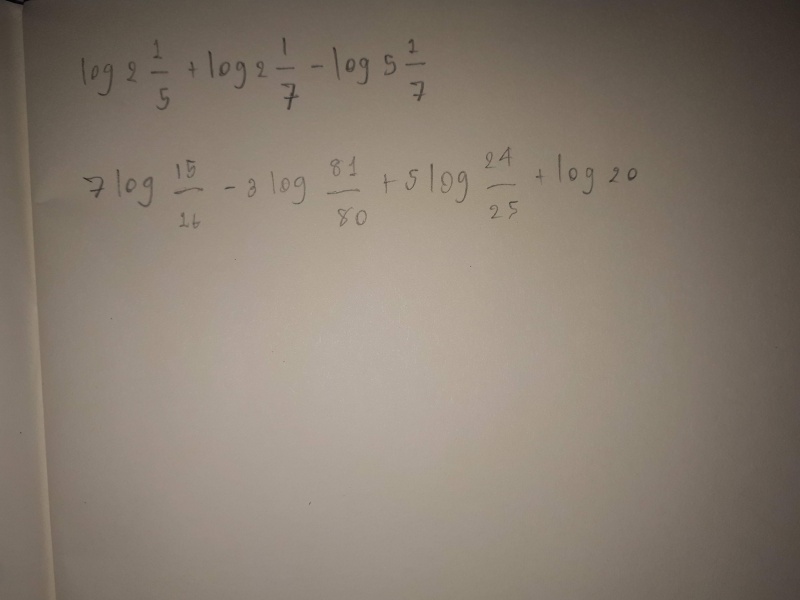 log 2 1/5 + log 2 1/7 - log 5 1/7
7 log 15/16 - 3 log 81/80 + 5 log 24/25 + log 20